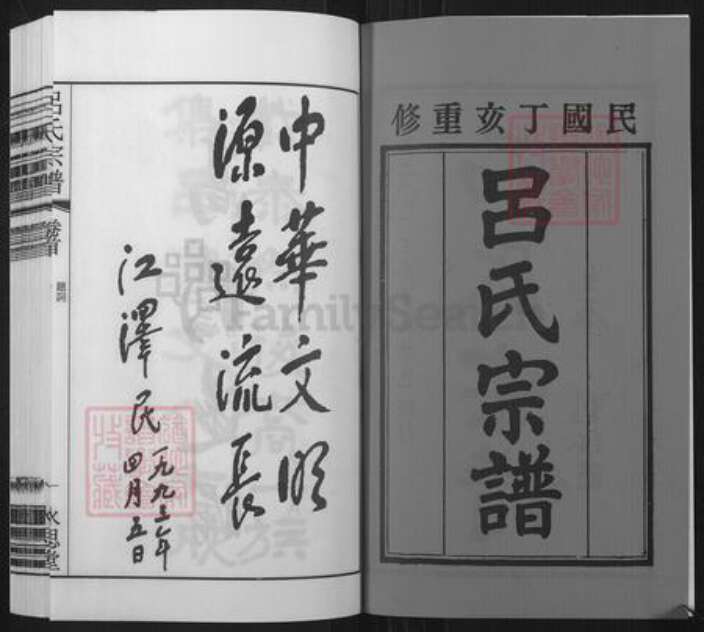 民國丁亥重修
呂氏宗譜
中華文明
源遠流長
江澤民
一九九三年
四月五日
呂氏宗譜
卷首
題詞
一
FamilySearch